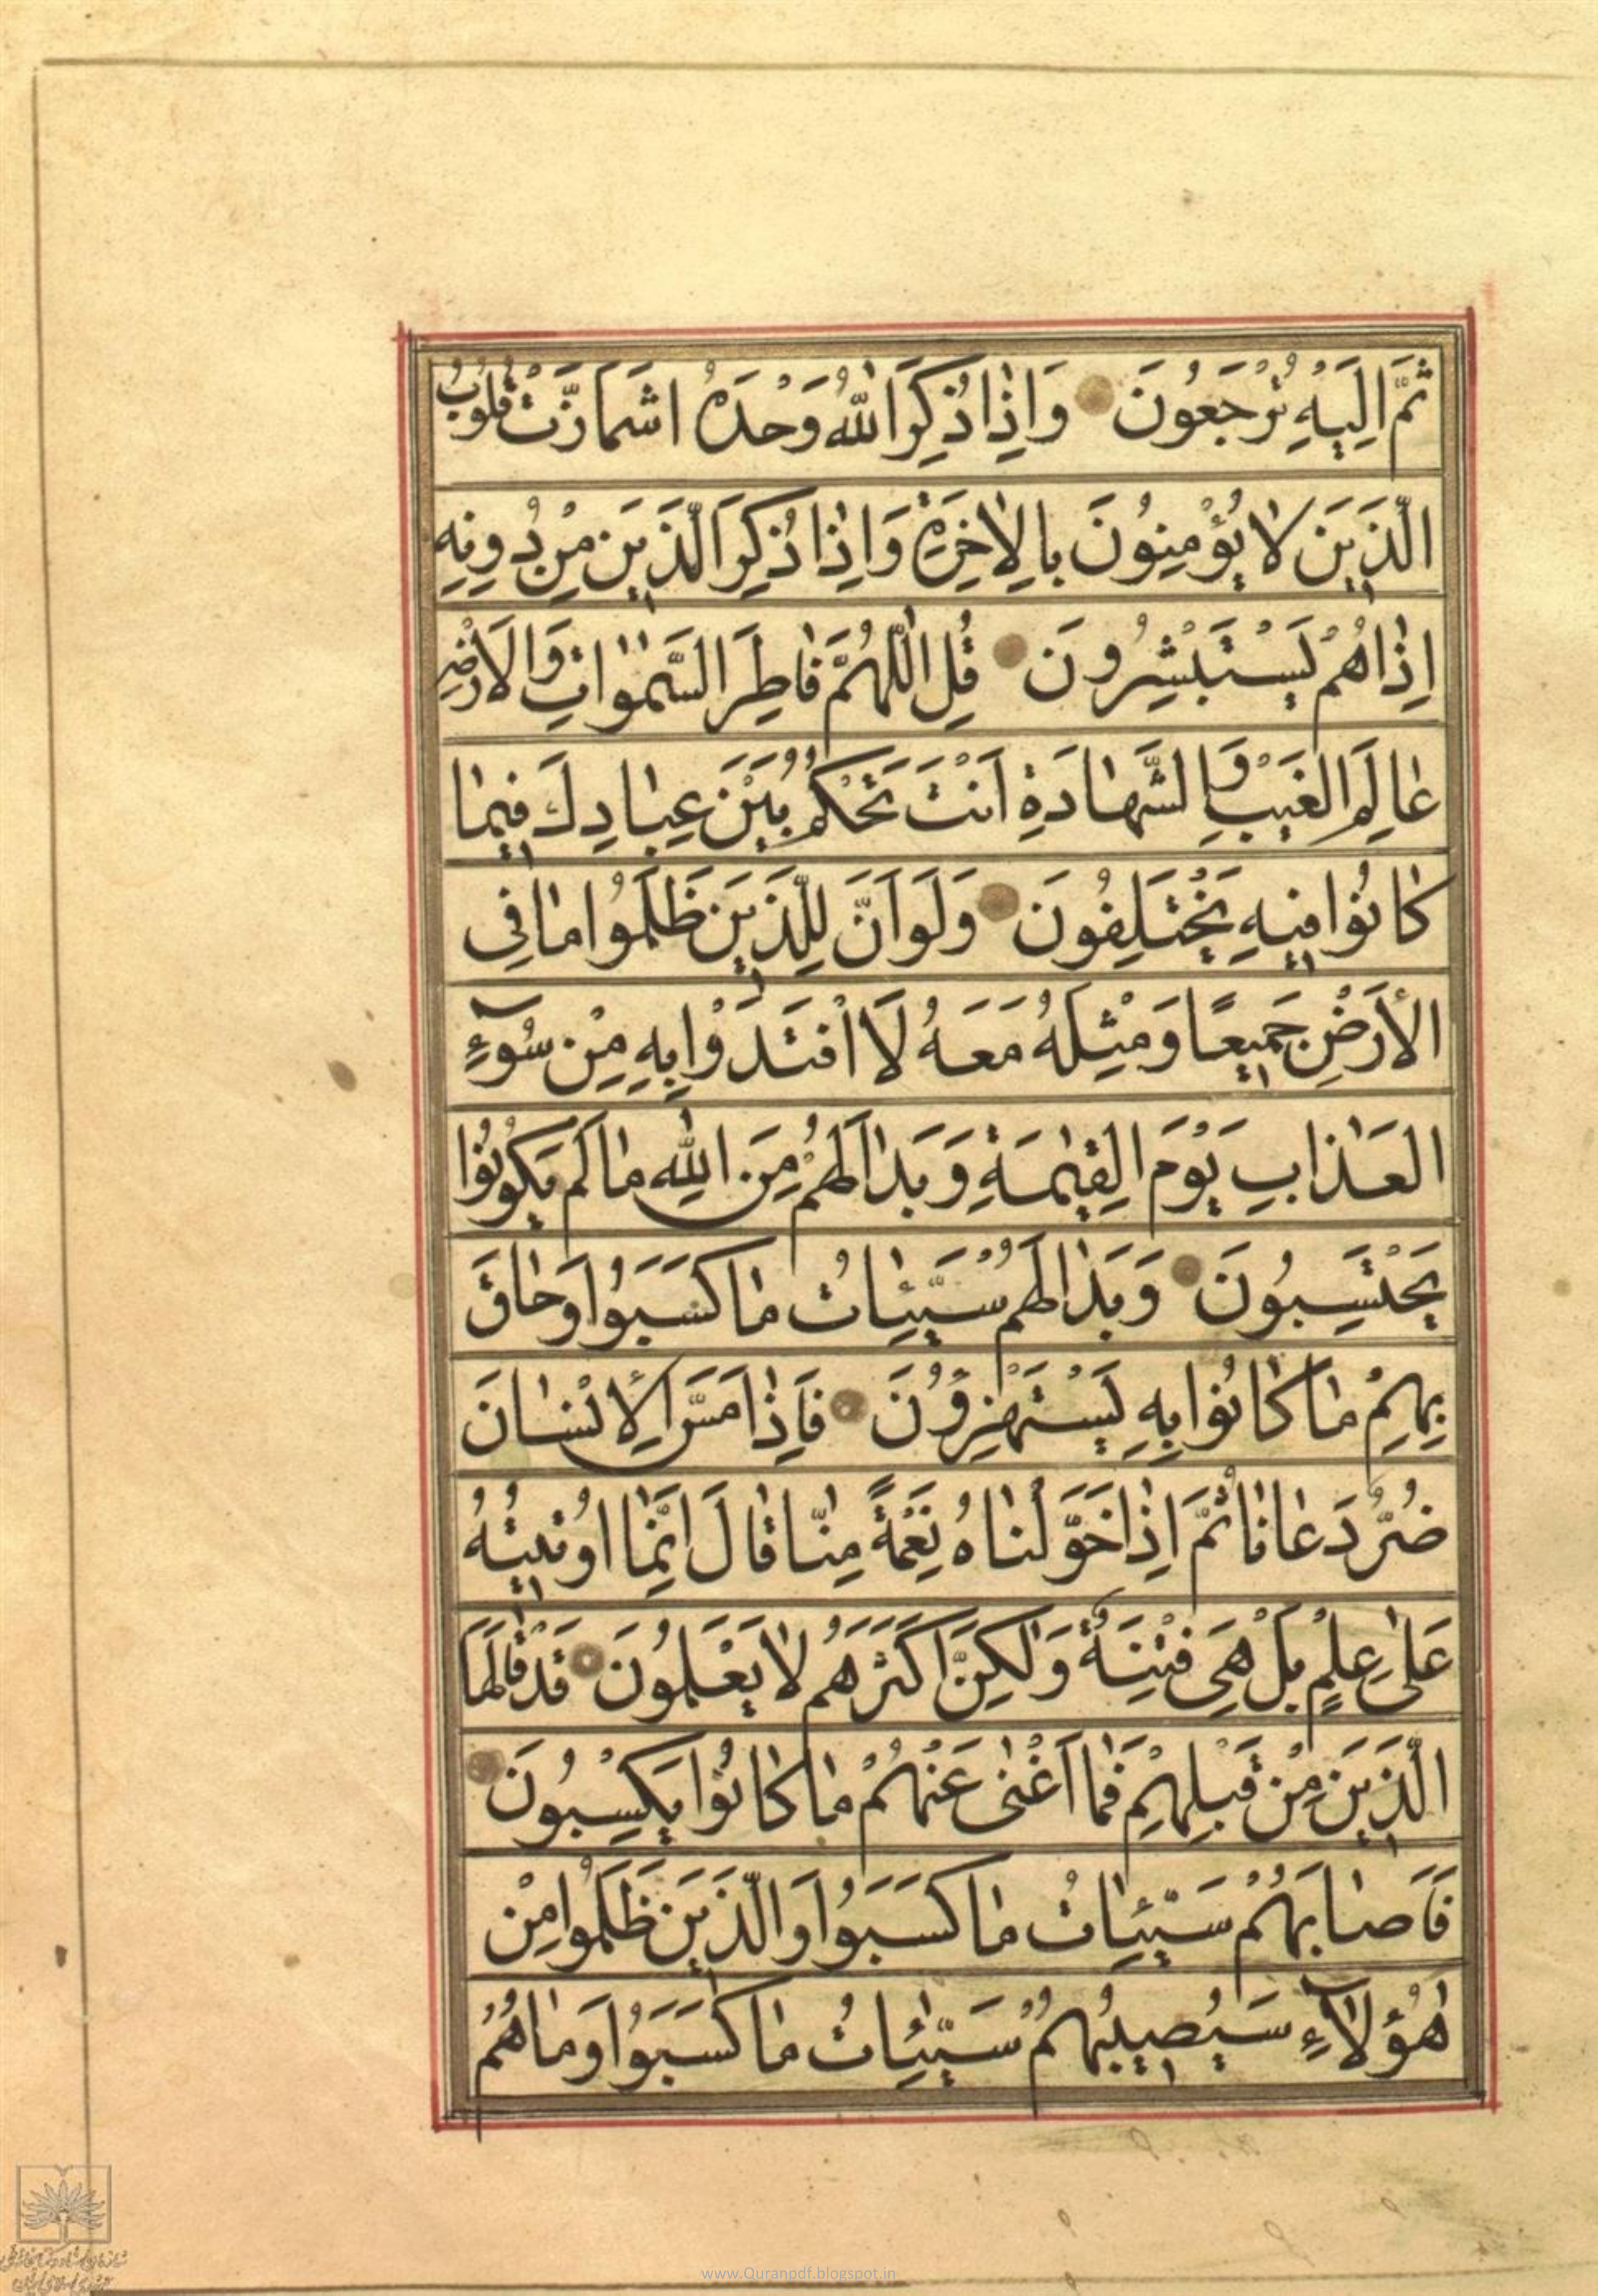 ثُمَّ اِلَيْهِ تُرْجَعُونَ وَاِذَا ذُكِرَ اللّٰهُ وَحْدَهُ اشْمَازَّتْ قُلُوبُ
الَّذِينَ لَا يُؤْمِنُونَ بِالْاٰخِرَةِ وَاِذَا ذُكِرَ الَّذِينَ مِنْ دُونِهِ
اِذَا هُمْ يَسْتَبْشِرُونَ قُلِ اللّٰهُمَّ فَاطِرَ السَّمٰوَاتِ وَالْاَرْضِ
عَالِمَ الْغَيْبِ وَالشَّهَادَةِ اَنْتَ تَحْكُمُ بَيْنَ عِبَادِكَ فِيمَا
كَانُوا فِيهِ يَخْتَلِفُونَ وَلَوْ اَنَّ لِلَّذِينَ ظَلَمُوا مَا فِى
الْاَرْضِ جَمِيعًا وَمِثْلَهُ مَعَهُ لَافْتَدَوْا بِهِ مِنْ سُوٓءِ
الْعَذَابِ يَوْمَ الْقِيٰمَةِ وَبَدَا لَهُمْ مِنَ اللّٰهِ مَا لَمْ يَكُونُوا
يَحْتَسِبُونَ وَبَدَا لَهُمْ سَيِّئَاتُ مَا كَسَبُوا وَحَاقَ
بِهِمْ مَا كَانُوا بِهِ يَسْتَهْزِؤُنَ فَاِذَا مَسَّ الْاِنْسَانَ
ضُرٌّ دَعَانَا ثُمَّ اِذَا خَوَّلْنَاهُ نِعْمَةً مِنَّا قَالَ اِنَّمَا اُوتِيتُهُ
عَلٰى عِلْمٍ بَلْ هِىَ فِتْنَةٌ وَلٰكِنَّ اَكْثَرَهُمْ لَا يَعْلَمُونَ قَدْ قَالَهَا
الَّذِينَ مِنْ قَبْلِهِمْ فَمَا اَغْنٰى عَنْهُمْ مَا كَانُوا يَكْسِبُونَ
فَاَصَابَهُمْ سَيِّئَاتُ مَا كَسَبُوا وَالَّذِينَ ظَلَمُوا مِنْ
هٰؤُلَآءِ سَيُصِيبُهُمْ سَيِّئَاتُ مَا كَسَبُوا وَمَا هُمْ
www.Quranpdf.blogspot.in